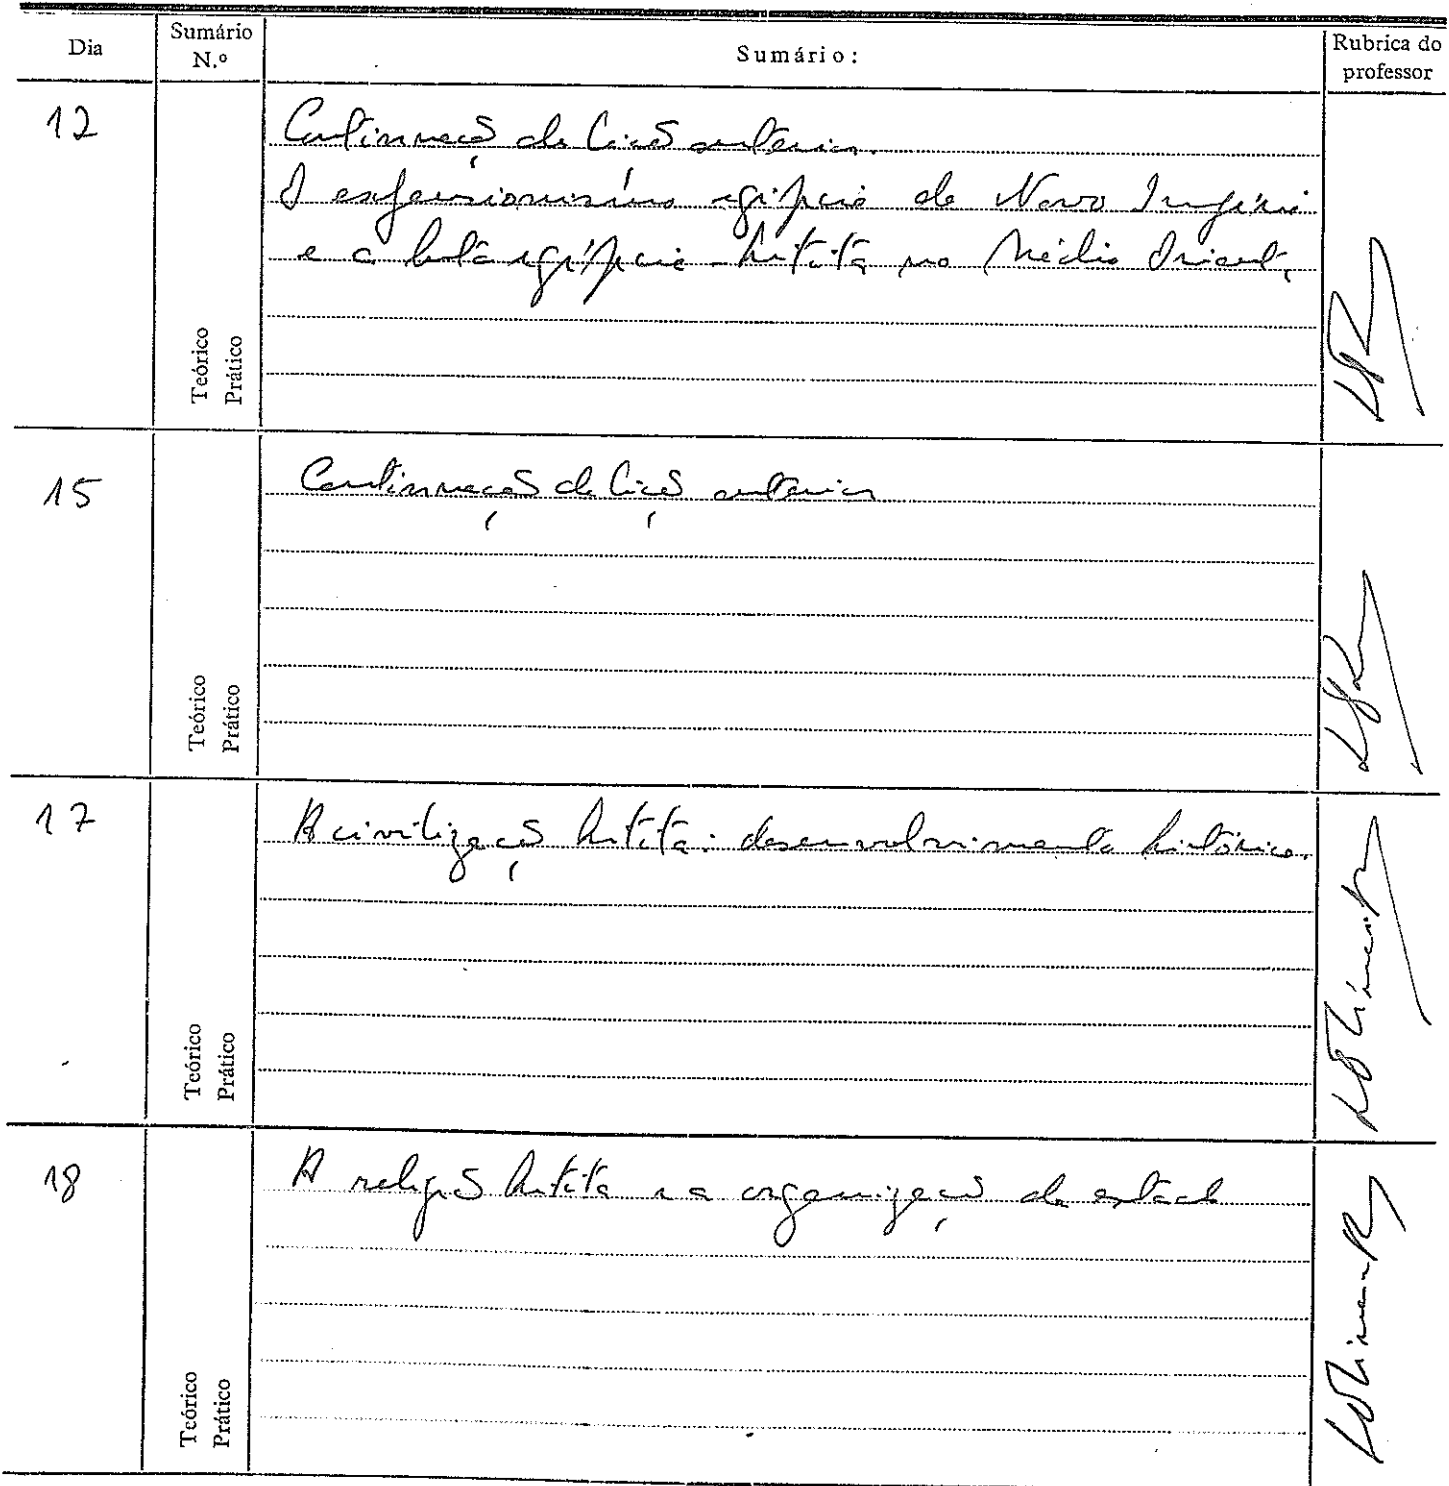 Dia
Sumário N.º
Sumário:
Rubrica do professor
12
Continuação da lição anterior.
O expansionismo egípcio do Novo Império
e a luta egípcio-hitita no Médio Oriente.
Teórico
Prático
15
Continuação da lição anterior
Teórico
Prático
17
A civilização hitita: desenvolvimento histórico.
Teórico
Prático
18
A religião hitita e a organização do estado
Teórico
Prático